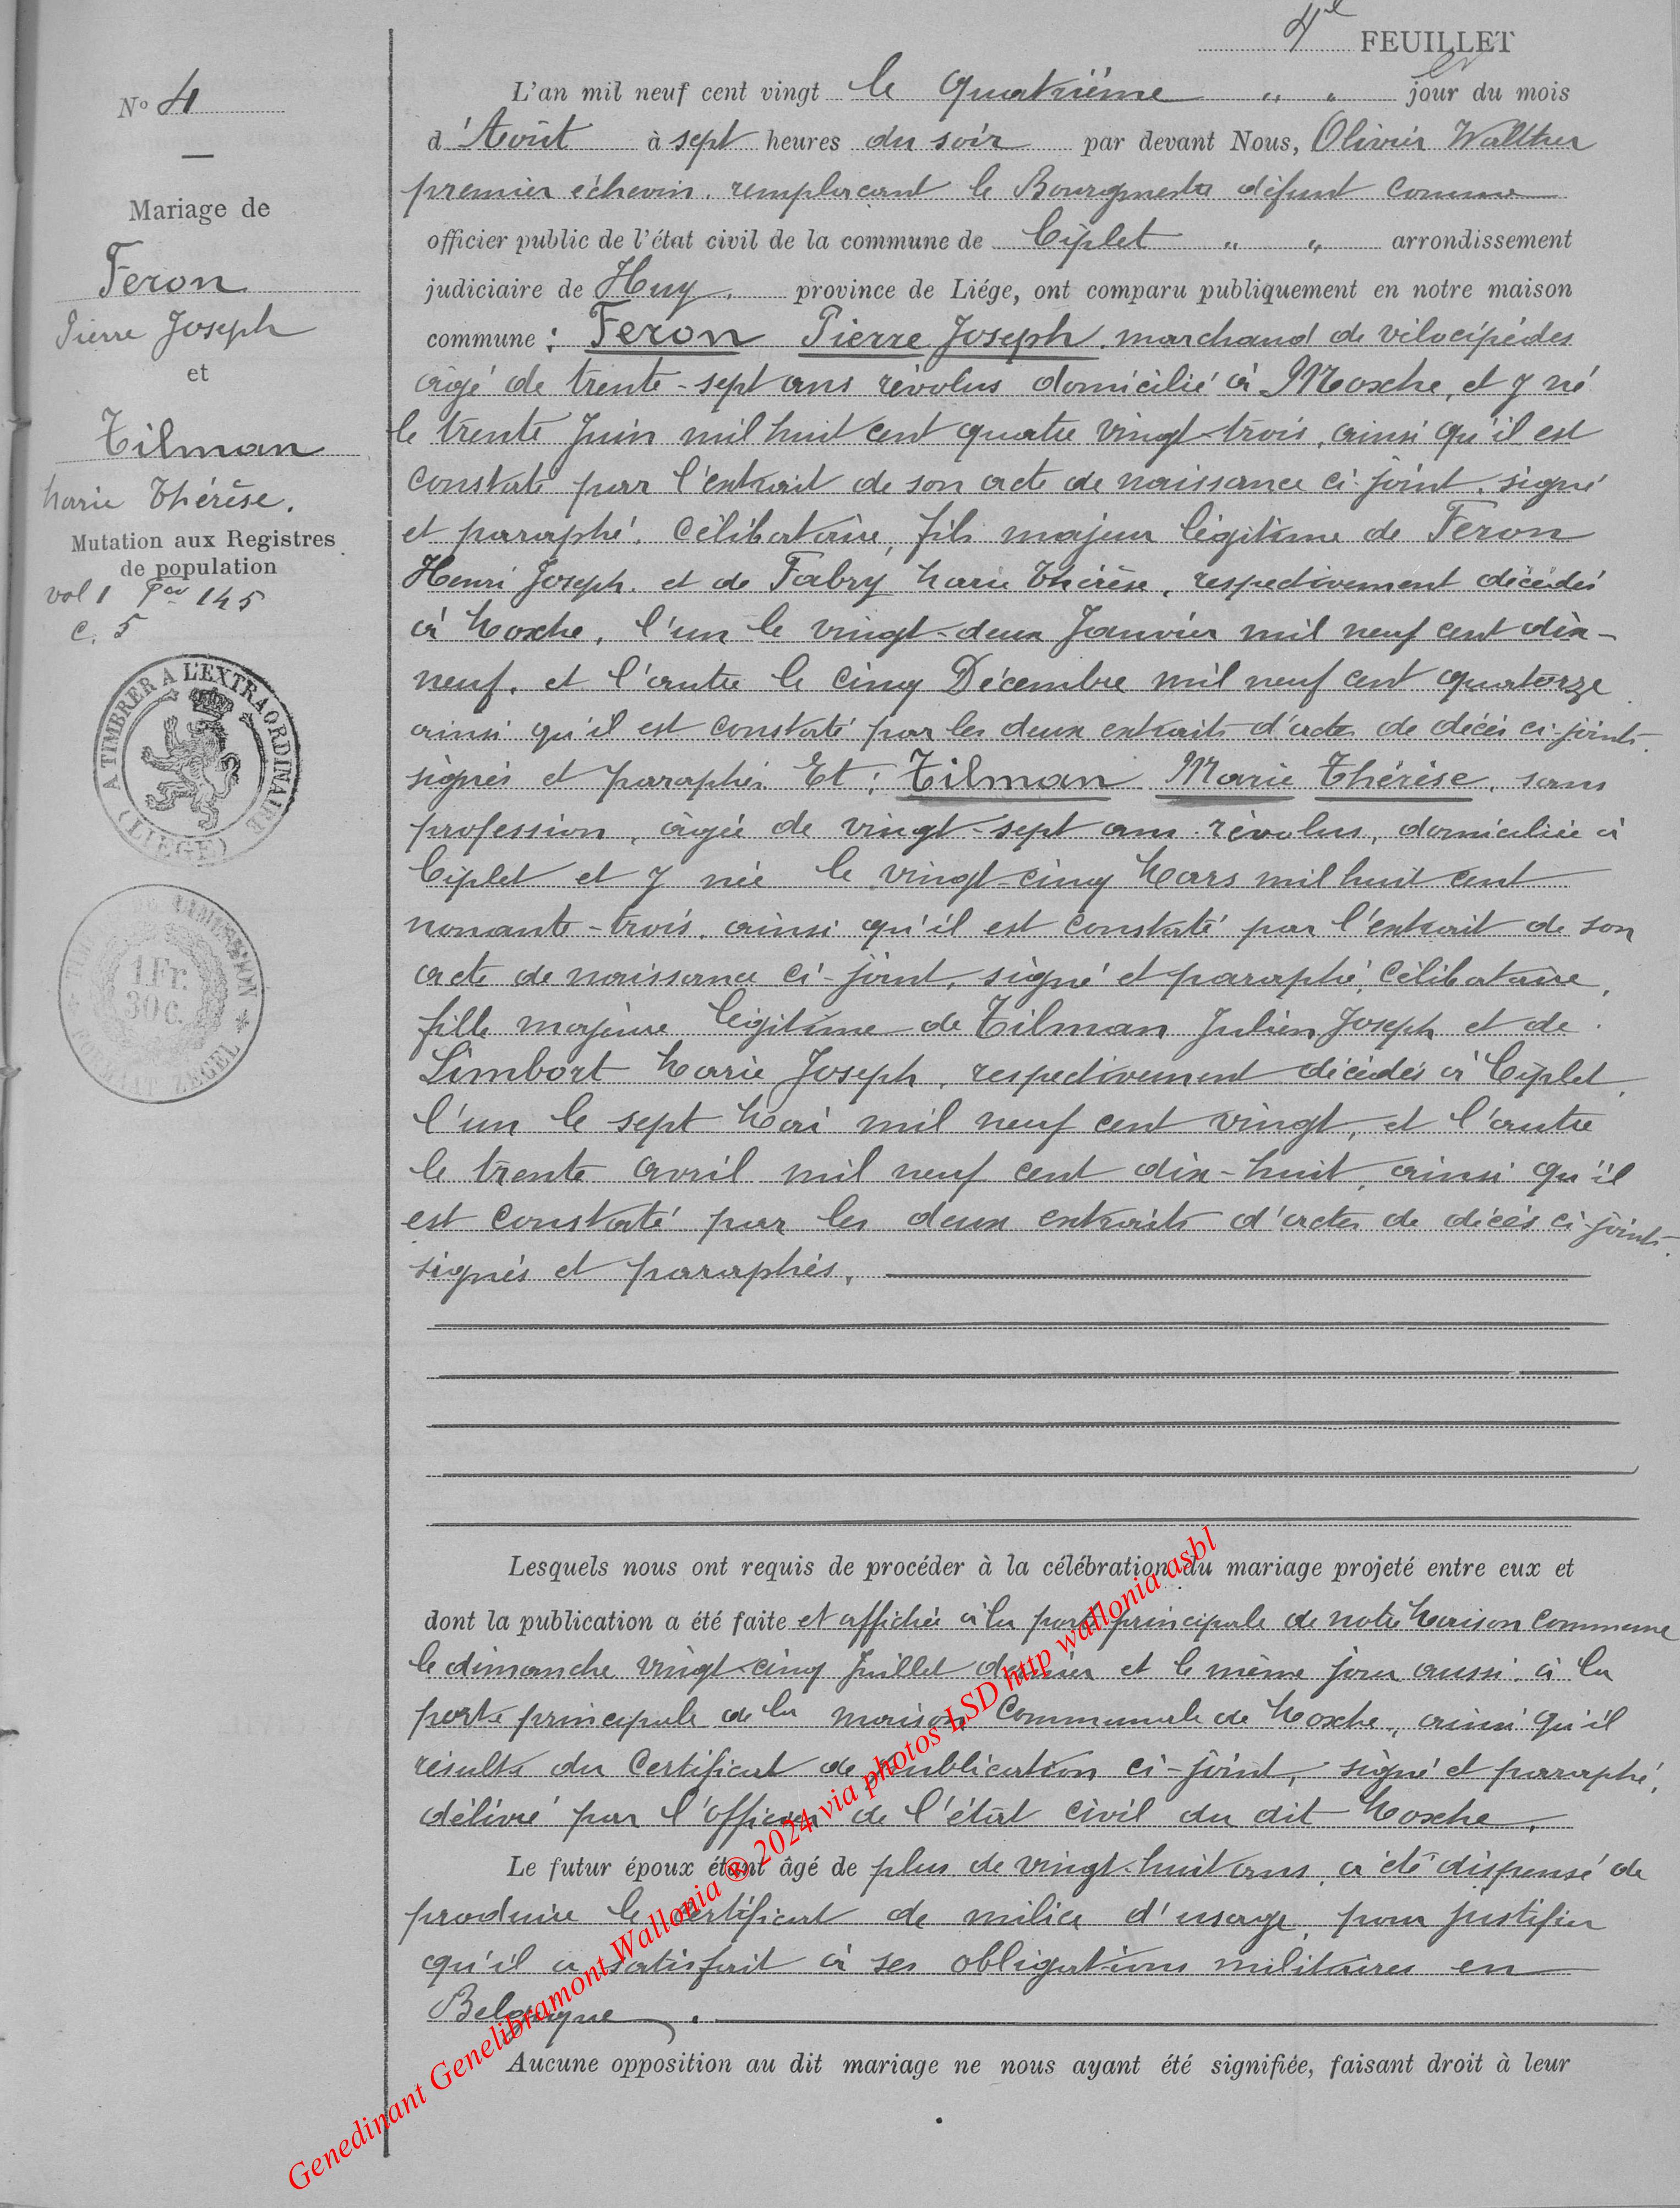 4e FEUILLET
L'an mil neuf cent vingt le quatrième " " jour du mois
d'Août à sept heures du soir par devant Nous, Olivier Walther
premier échevin, remplaçant le Bourgmestre défunt comme
officier public de l'état civil de la commune de Ciplet " " arrondissement
judiciaire de Huy. province de Liége, ont comparu publiquement en notre maison
commune : Feron Pierre Joseph, marchand de vélocipèdes
âgé de trente-sept ans révolus domicilié à Moxhe, et y né
le trente Juin mil huit cent quatre vingt-trois, ainsi qu'il est
constaté par l'extrait de son acte de naissance ci-joint, signé
et paraphé, célibataire, fils majeur légitime de Feron
Henri Joseph. et de Fabry Marie Thérèse, respectivement décédés
à Moxhe, l'un le vingt-deux Janvier mil neuf cent dix-
neuf, et l'autre le cinq Décembre mil neuf cent quatorze
ainsi qu'il est constaté par les deux extraits d'actes de décès ci-joints
signés et paraphés. Et : Tilman Marie Thérèse, sans
profession, âgée de vingt-sept ans révolus, domiciliée à
Ciplet et y née le vingt-cinq Mars mil huit cent
nonante-trois, ainsi qu'il est constaté par l'extrait de son
acte de naissance ci-joint, signé et paraphé, célibataire,
fille majeure légitime de Tilman Julien Joseph et de
Limbort Marie Joseph, respectivement décédés à Ciplet
l'un le sept Mai mil neuf cent vingt, et l'autre
le trente avril mil neuf cent dix-huit, ainsi qu'il
est constaté par les deux extraits d'actes de décès ci-joints
signés et paraphés.
Lesquels nous ont requis de procéder à la célébration du mariage projeté entre eux et
dont la publication a été faite et affichée à la porte principale de notre Maison Commune
le dimanche vingt-cinq Juillet dernier et le même jour aussi à la
porte principale de la maison Communale de Moxhe, ainsi qu'il
résulte du Certificat de publication ci-joint, signé et paraphé,
délivré par l'officier de l'état civil du dit Moxhe.
Le futur époux étant âgé de plus de vingt-huit ans, a été dispensé de
produire le certificat de milice d'usage, pour justifier
qu'il a satisfait à ses obligations militaires en
Belgique.
Aucune opposition au dit mariage ne nous ayant été signifiée, faisant droit à leur
No 4
Mariage de
Feron
Pierre Joseph
et
Tilman
Marie Thérèse.
Mutation aux Registres
de population
vol 1 145
C. 5
A TIMBRER A L'EXTRAORDINAIRE
(LIEGE)
1 Fr.
30 c.
ZEGEL
Genedinant Genelibramont Wallonia ® 2024 via photos LSD http wallonia asbl